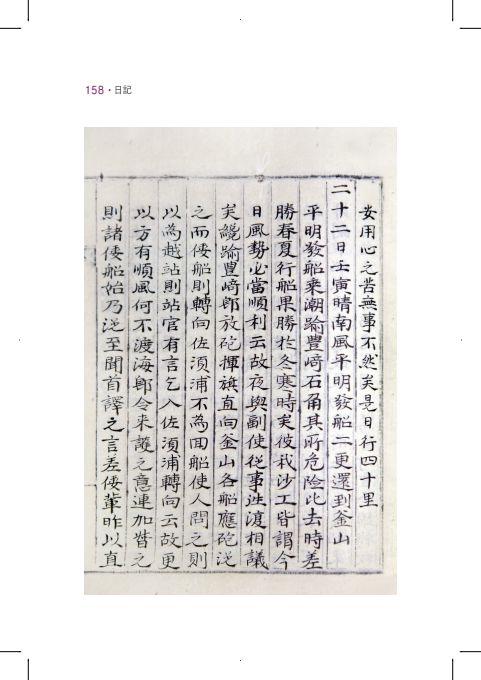 158 · 日記
妄用心之苦無事不然矣是日行四十里
二十二日壬寅晴南風平明發船二更還到釜山
平明發船乘潮踰豊崎石角其所危險比去時差
勝春夏行船果勝於冬寒時矣彼我沙工皆謂今
日風勢必當順利云故夜與副使從事迭渡相議
矣纔踰豊崎卽放砲揮旗直向釜山各船應砲從
之而倭船則轉向佐湏浦不為回船使人問之則
以為越站則站官有言乞入佐湏浦轉向云故更
以方有順風何不渡海卽令来護之意連加督之
則諸倭船始乃从至聞首譯之言差倭輩昨以直